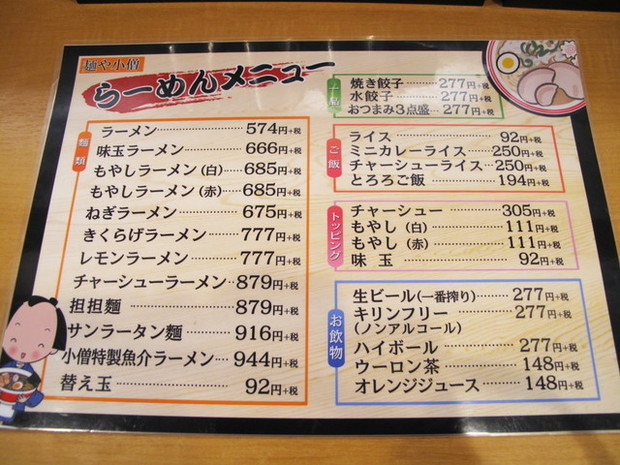 麺や小僧
らーめんメニュー
麺類
ラーメン…………574円+税
味玉ラーメン………666円+税
もやしラーメン(白)…685円+税
もやしラーメン(赤)…685円+税
ねぎラーメン………675円+税
きくらげラーメン……777円+税
レモンラーメン………777円+税
チャーシューラーメン…879円+税
担担麺……………879円+税
サンラータン麺………916円+税
小僧特製魚介ラーメン…944円+税
替え玉……………92円+税
一品
焼き餃子…………277円+税
水餃子……………277円+税
おつまみ3点盛……277円+税
ご飯
ライス………………92円+税
ミニカレーライス……250円+税
チャーシューライス…250円+税
とろろご飯…………194円+税
トッピング
チャーシュー………305円+税
もやし(白)…………111円+税
もやし(赤)…………111円+税
味玉…………………92円+税
お飲物
生ビール(一番搾り)……277円+税
キリンフリー…………277円+税
(ノンアルコール)
ハイボール…………277円+税
ウーロン茶…………148円+税
オレンジジュース……148円+税